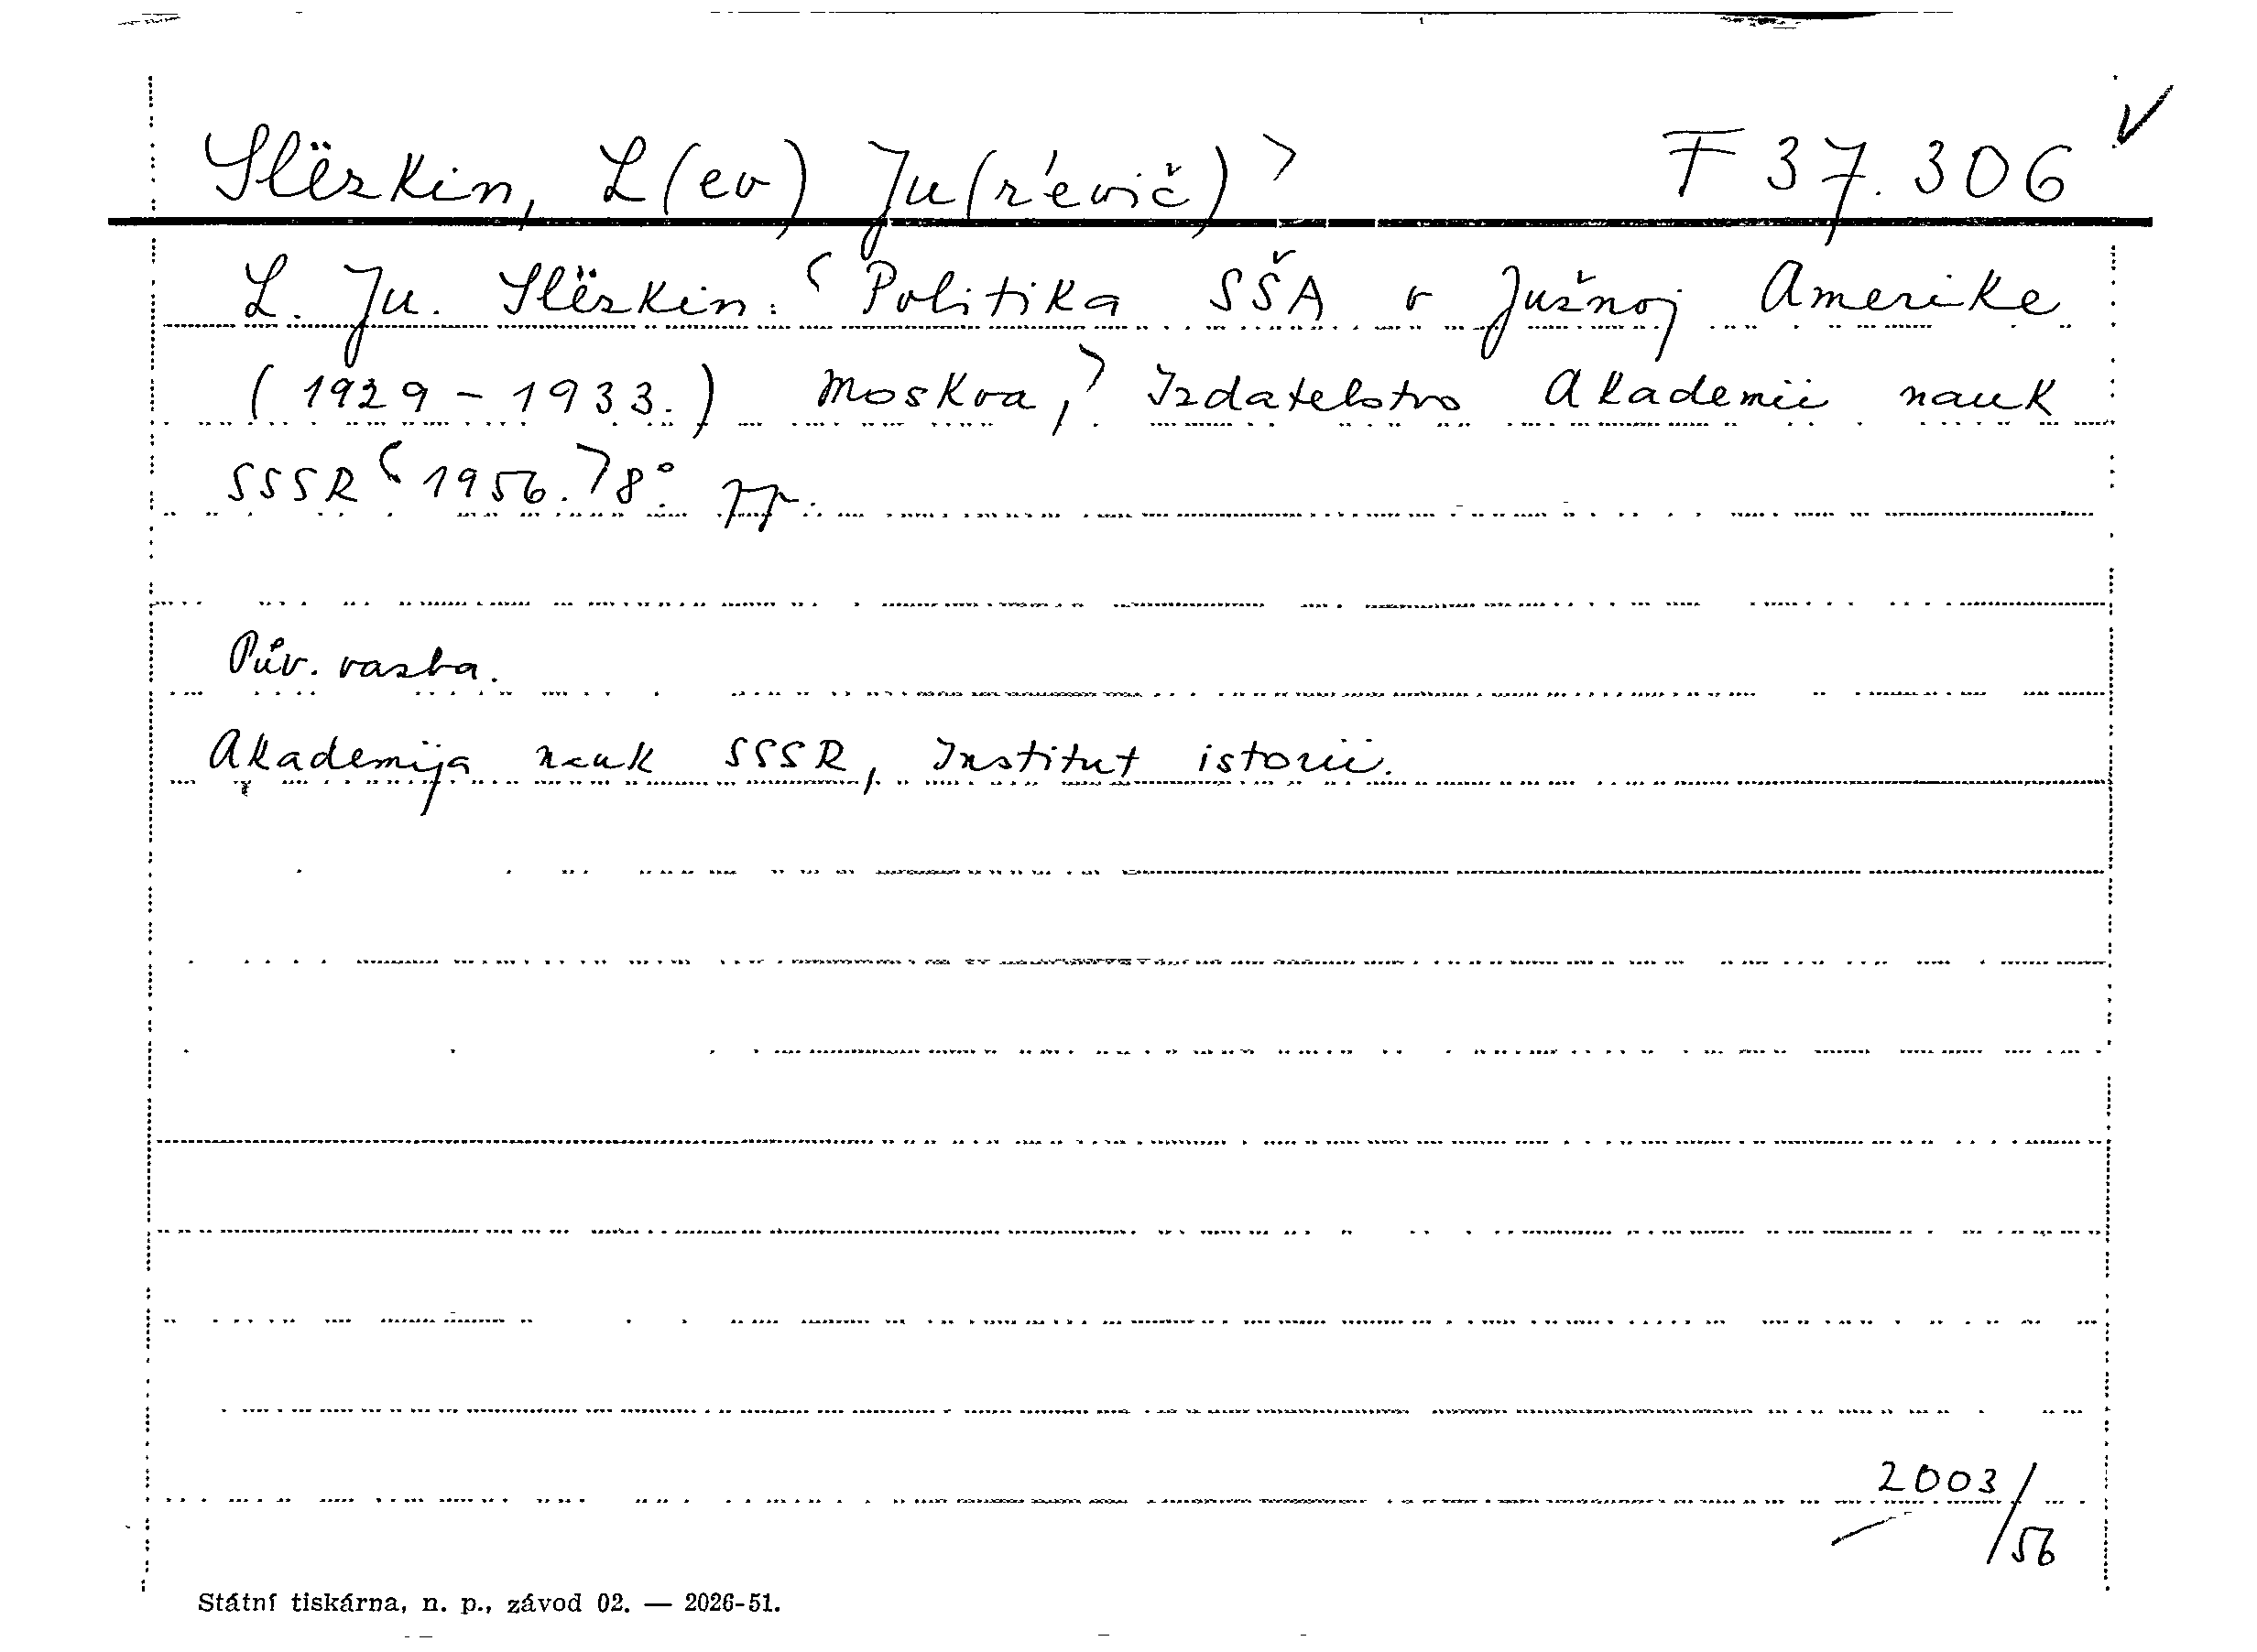 Slëzkin, L(ev) Ju(r'evič) > F 37.306 ✓
L. Ju. Slëzkin: < Politika SŠA v Južnoj Amerike
(1929 - 1933.) Moskva, > Izdatelstvo Akademii nauk
SSSR < 1956. > 8°.
Pův. vazba.
Akademija nauk SSSR, Institut istorii.
2003/56
Státní tiskárna, n. p., závod 02. — 2026-51.